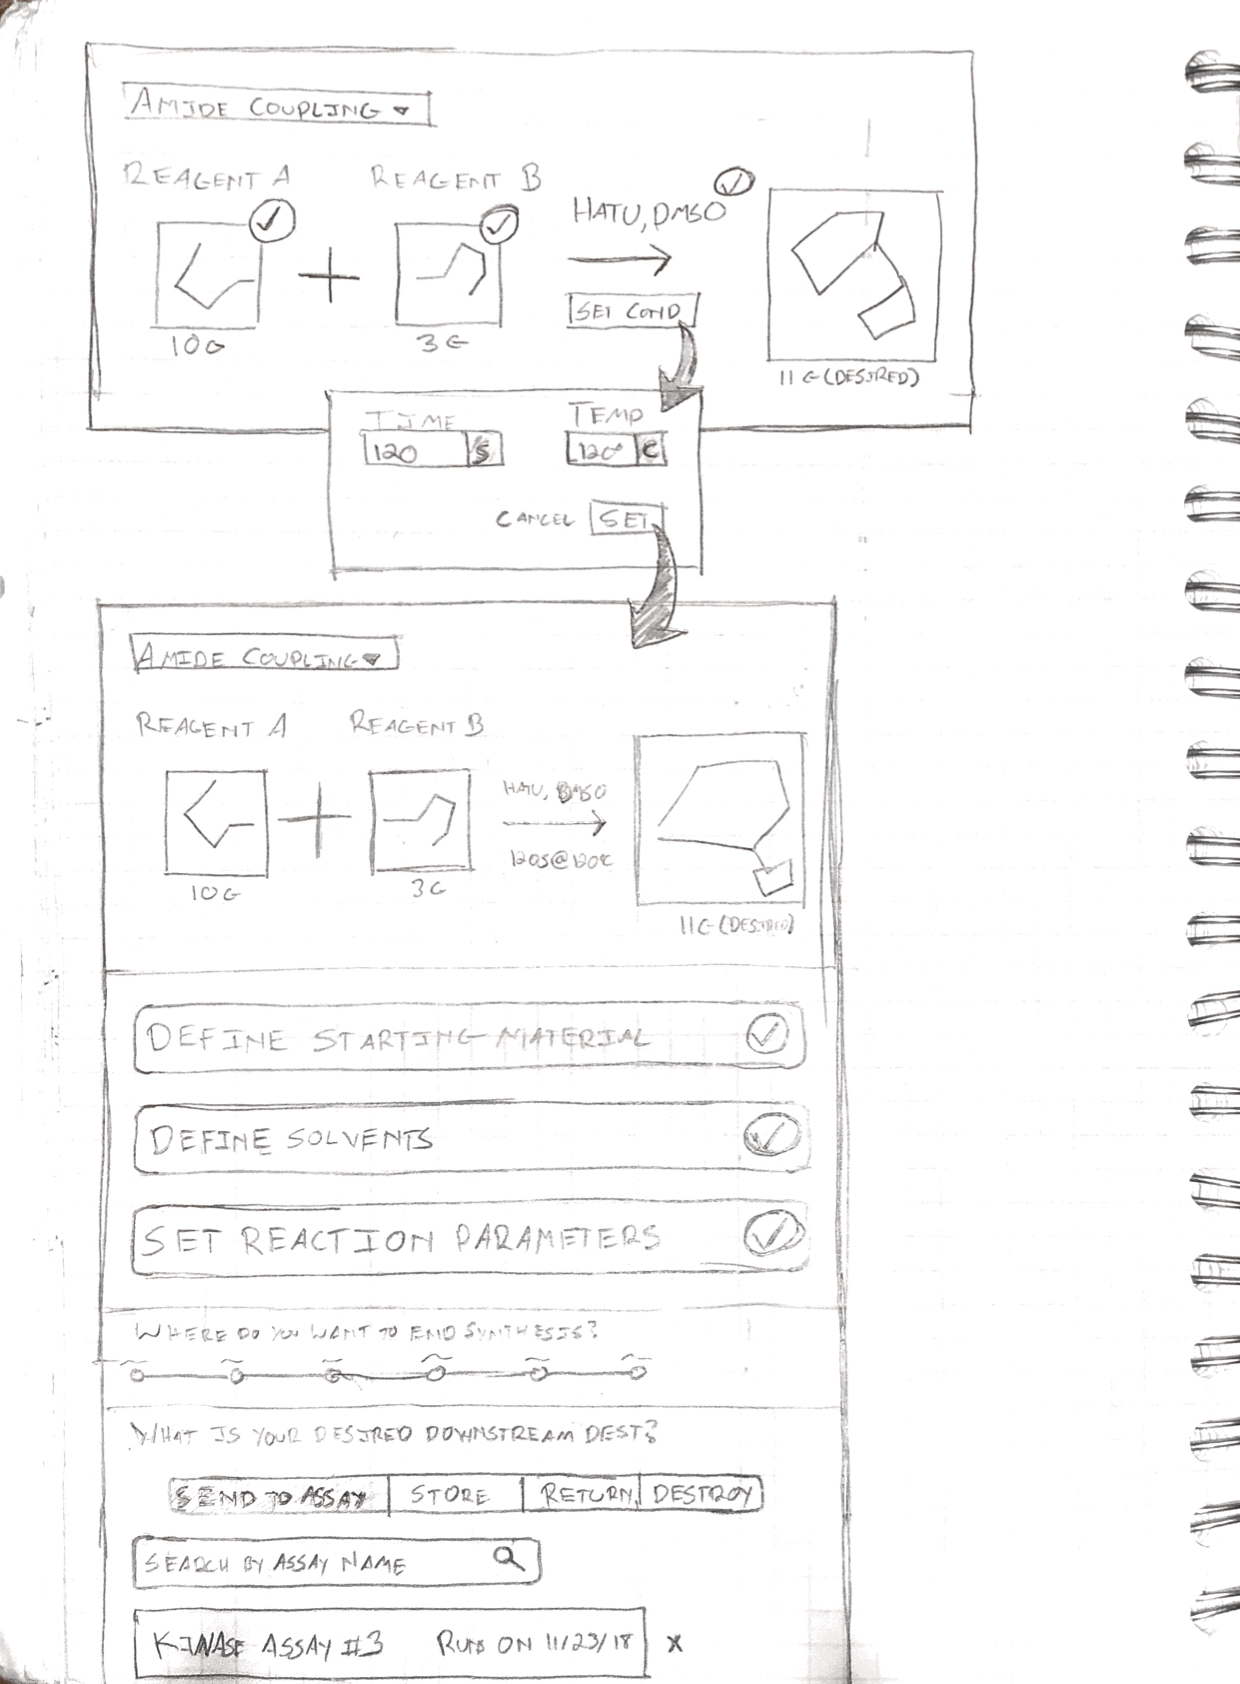 AMIDE COUPLING
REAGENT A
REAGENT B
HATU, DMSO
SET COND
10G
3G
11G (DESIRED)
TIME
TEMP
120 S
120° C
CANCEL SET
AMIDE COUPLING
REAGENT A
REAGENT B
HATU, DMSO
120S@120C
10G
3G
11G (DESIRED)
DEFINE STARTING MATERIAL
DEFINE SOLVENTS
SET REACTION PARAMETERS
WHERE DO YOU WANT TO END SYNTHESIS?
WHAT IS YOUR DESIRED DOWNSTREAM DEST?
SEND TO ASSAY STORE RETURN DESTROY
SEARCH BY ASSAY NAME
KINASE ASSAY #3 RUN ON 11/23/18 X